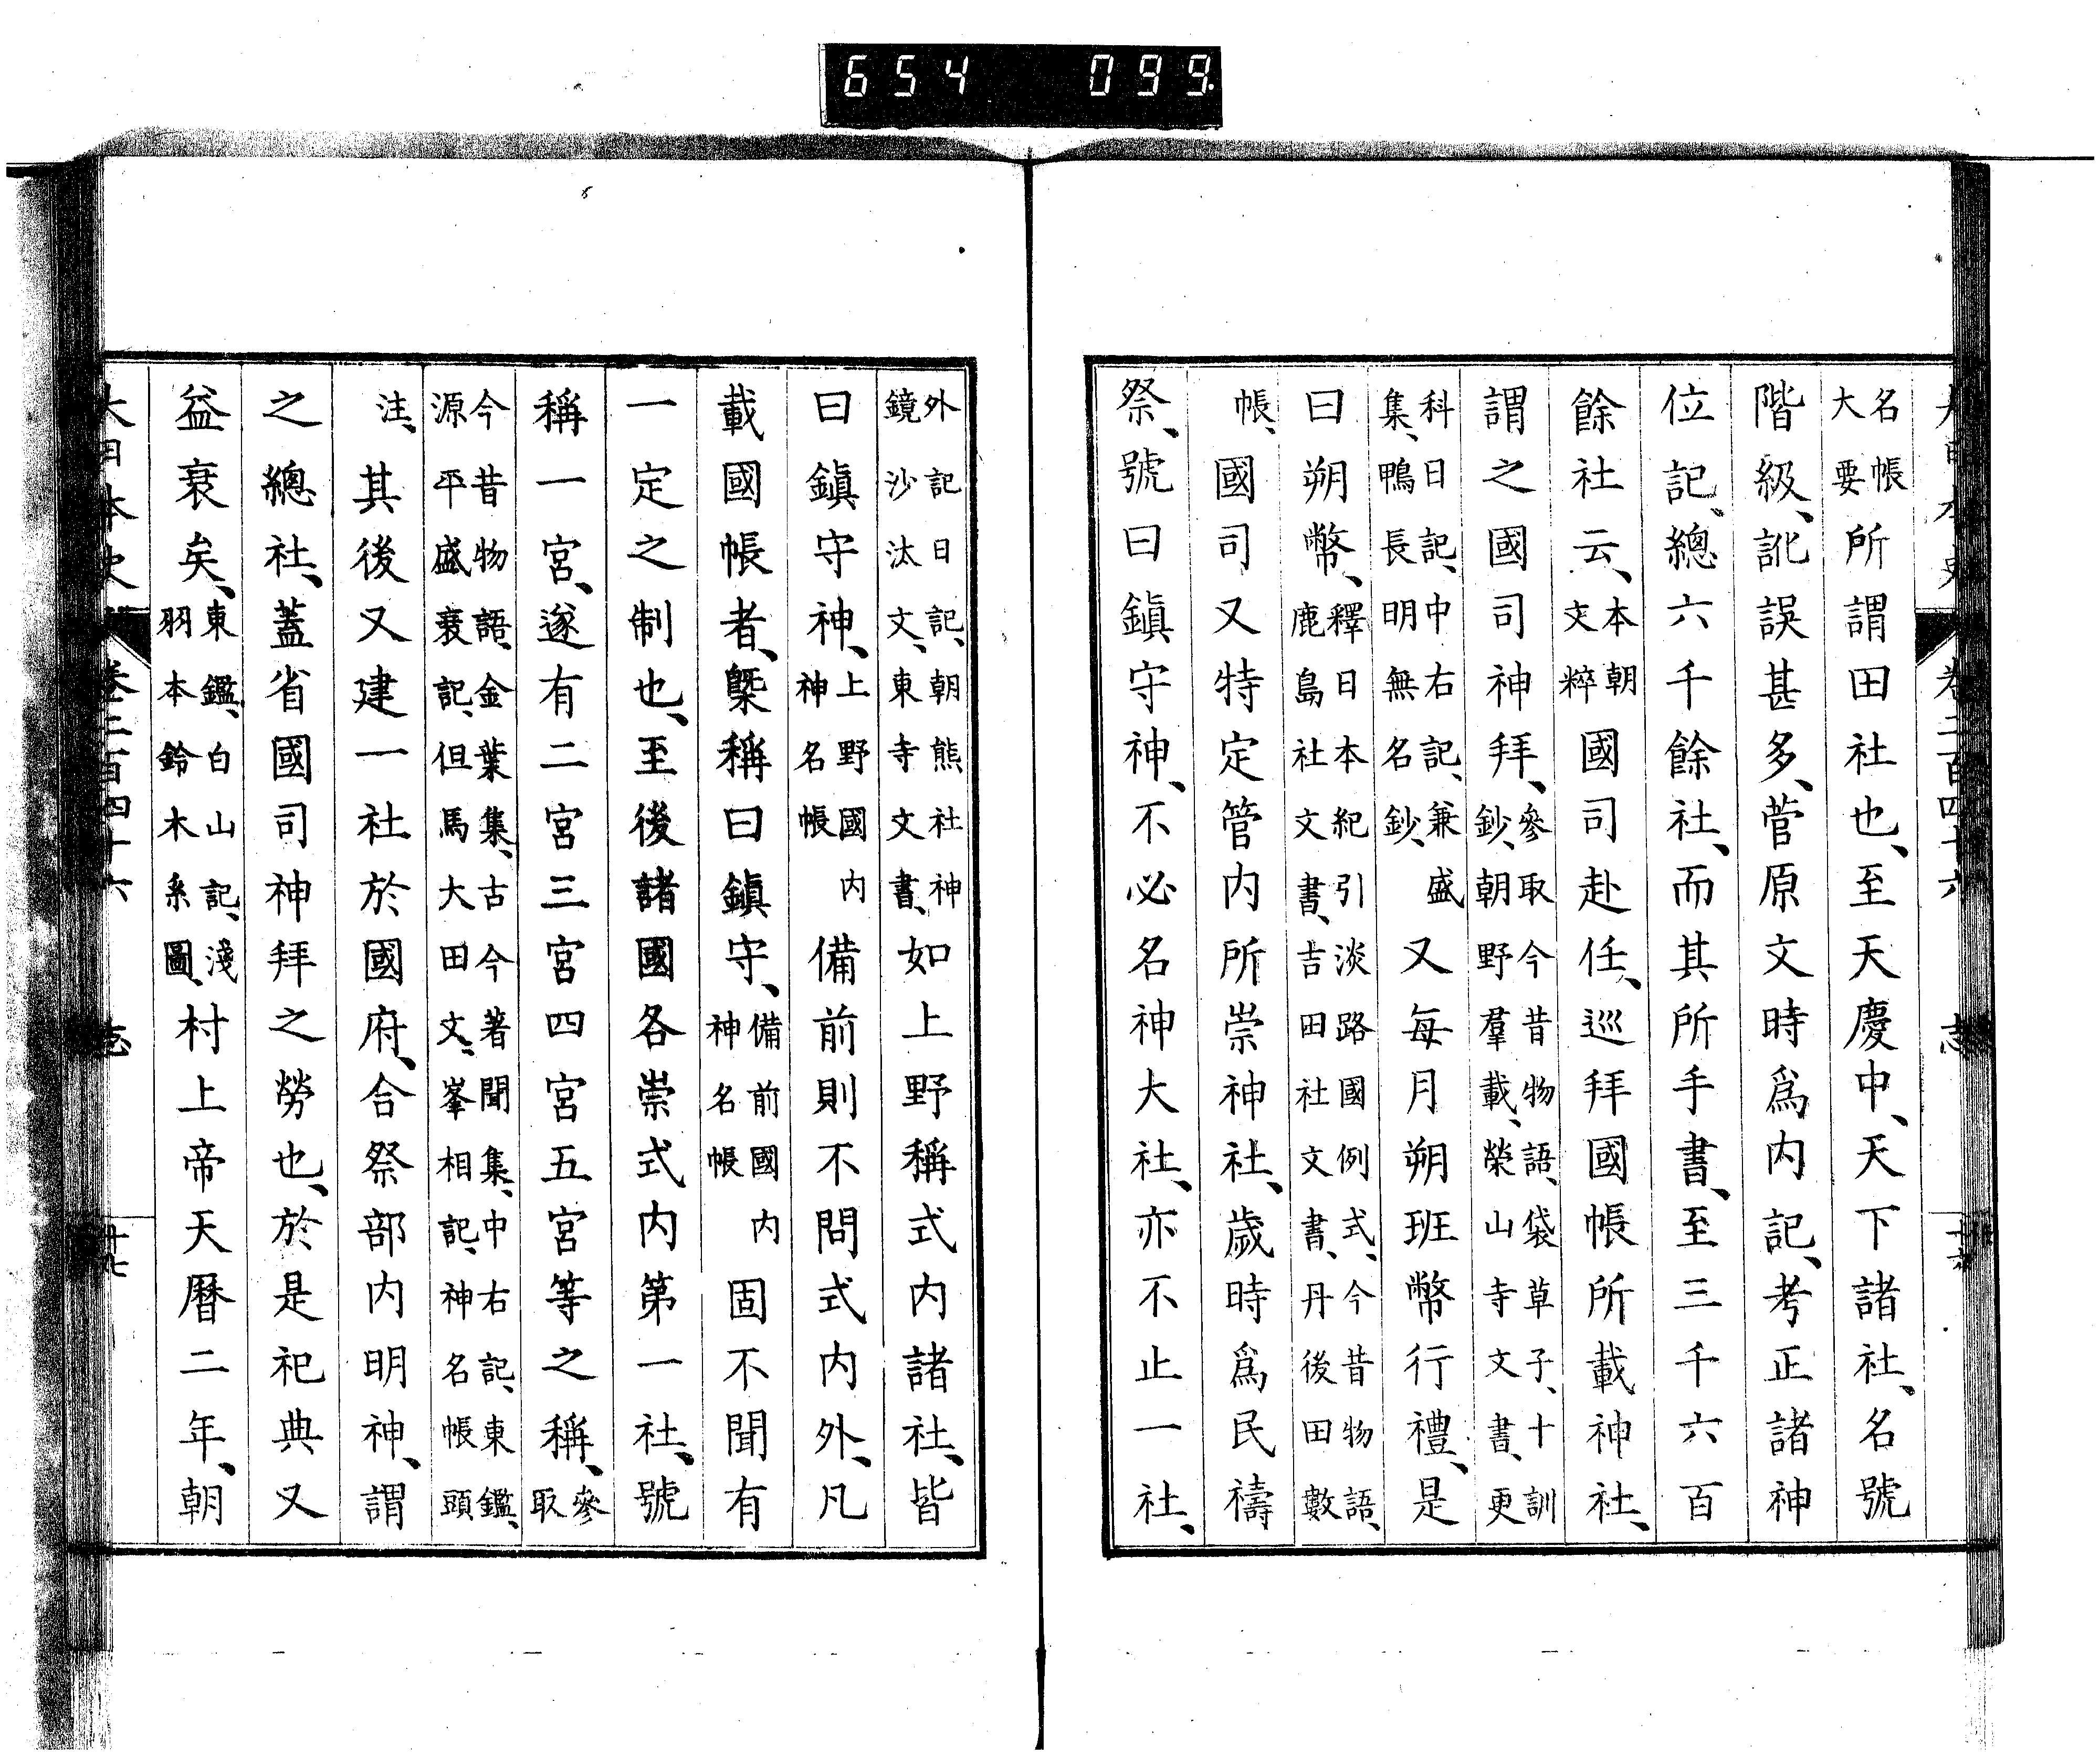 654 099
大日本史 卷二百四十六 志 十六
名帳大要所謂田社也、至天慶中、天下諸社、名號
階級、訛誤甚多、菅原文時爲内記、考正諸神
位記、總六千餘社、而其所手書、至三千六百
餘社云、本朝文粹國司赴任、巡拜國帳所載神社、
謂之國司神拜、參取今昔物語、袋草子、十訓鈔、朝野羣載、榮山寺文書、更
科日記、中右記、兼盛集、鴨長明無名鈔、又每月朔班幣行禮、是
曰朔幣、釋日本紀引淡路國例式、今昔物語、鹿島社文書、吉田社文書、丹後田數
帳、國司又特定管内所崇神社、歲時爲民禱
祭、號曰鎮守神、不必名神大社、亦不止一社、
外記日記、朝熊社神鏡沙汰文、東寺文書、如上野稱式内諸社、皆
曰鎮守神、上野國内神名帳備前則不問式内外、凡
載國帳者、槩稱曰鎮守、備前國内神名帳固不聞有
一定之制也、至後諸國各崇式内第一社、號
稱一宮、遂有二宮三宮四宮五宮等之稱、參取
今昔物語、金葉集、古今著聞集、中右記、東鑑、源平盛衰記、但馬大田文、峯相記、神名帳頭
注、其後又建一社於國府、合祭部内明神、謂
之總社、蓋省國司神拜之勞也、於是祀典又
益衰矣、東鑑、白山記、淺羽本鈴木系圖、村上帝天曆二年、朝
大日本史 卷二百四十六 志 十七